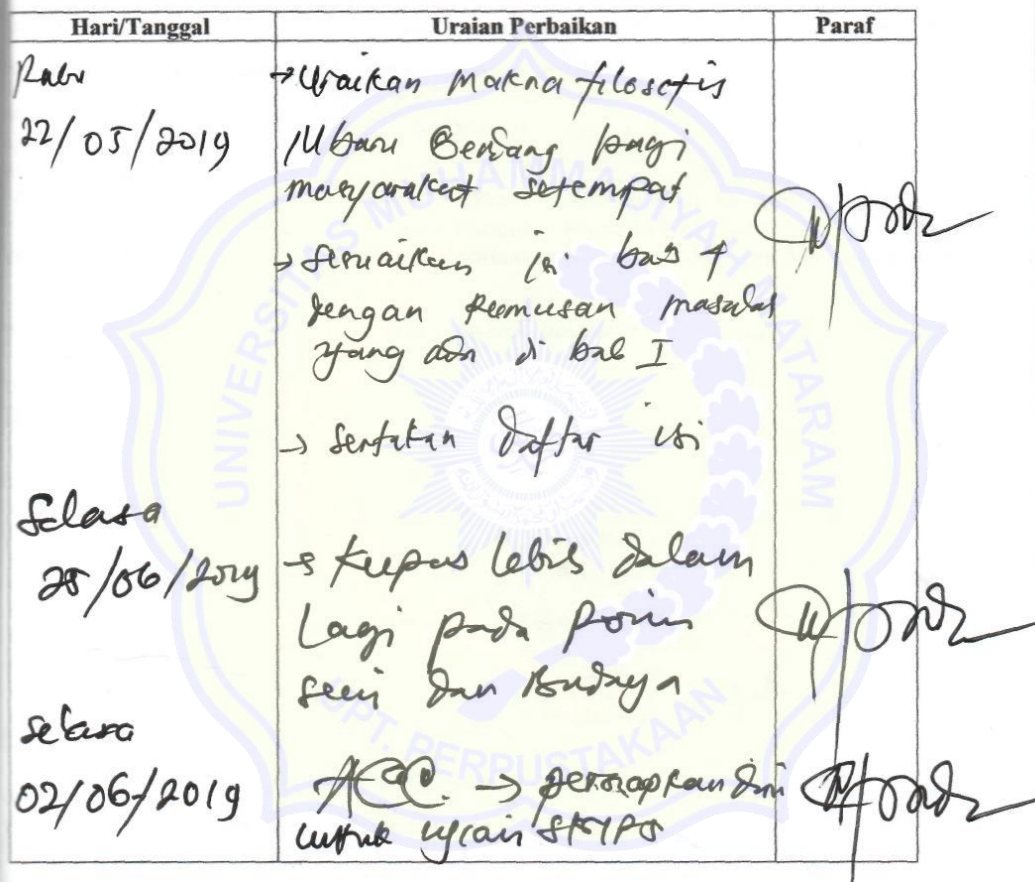 Hari/Tanggal Uraian Perbaikan Paraf
Rabu → Uraikan makna filosofis
22/05/2019 Bagi
masyarakat setempat
→ Sesuaikan isi bab 4
dengan Rumusan masalah
yang ada di bab I
→ Sertakan Daftar isi
Selasa
25/06/2019 → Kupas lebih dalam
Lagi pada Poin
seni dan Budaya
Selasa
02/06/2019 ACC. → persiapkan diri
untuk ujian SKRIPSI
UNIVERSITAS MUHAMMADIYAH MATARAM
UPT. PERPUSTAKAAN